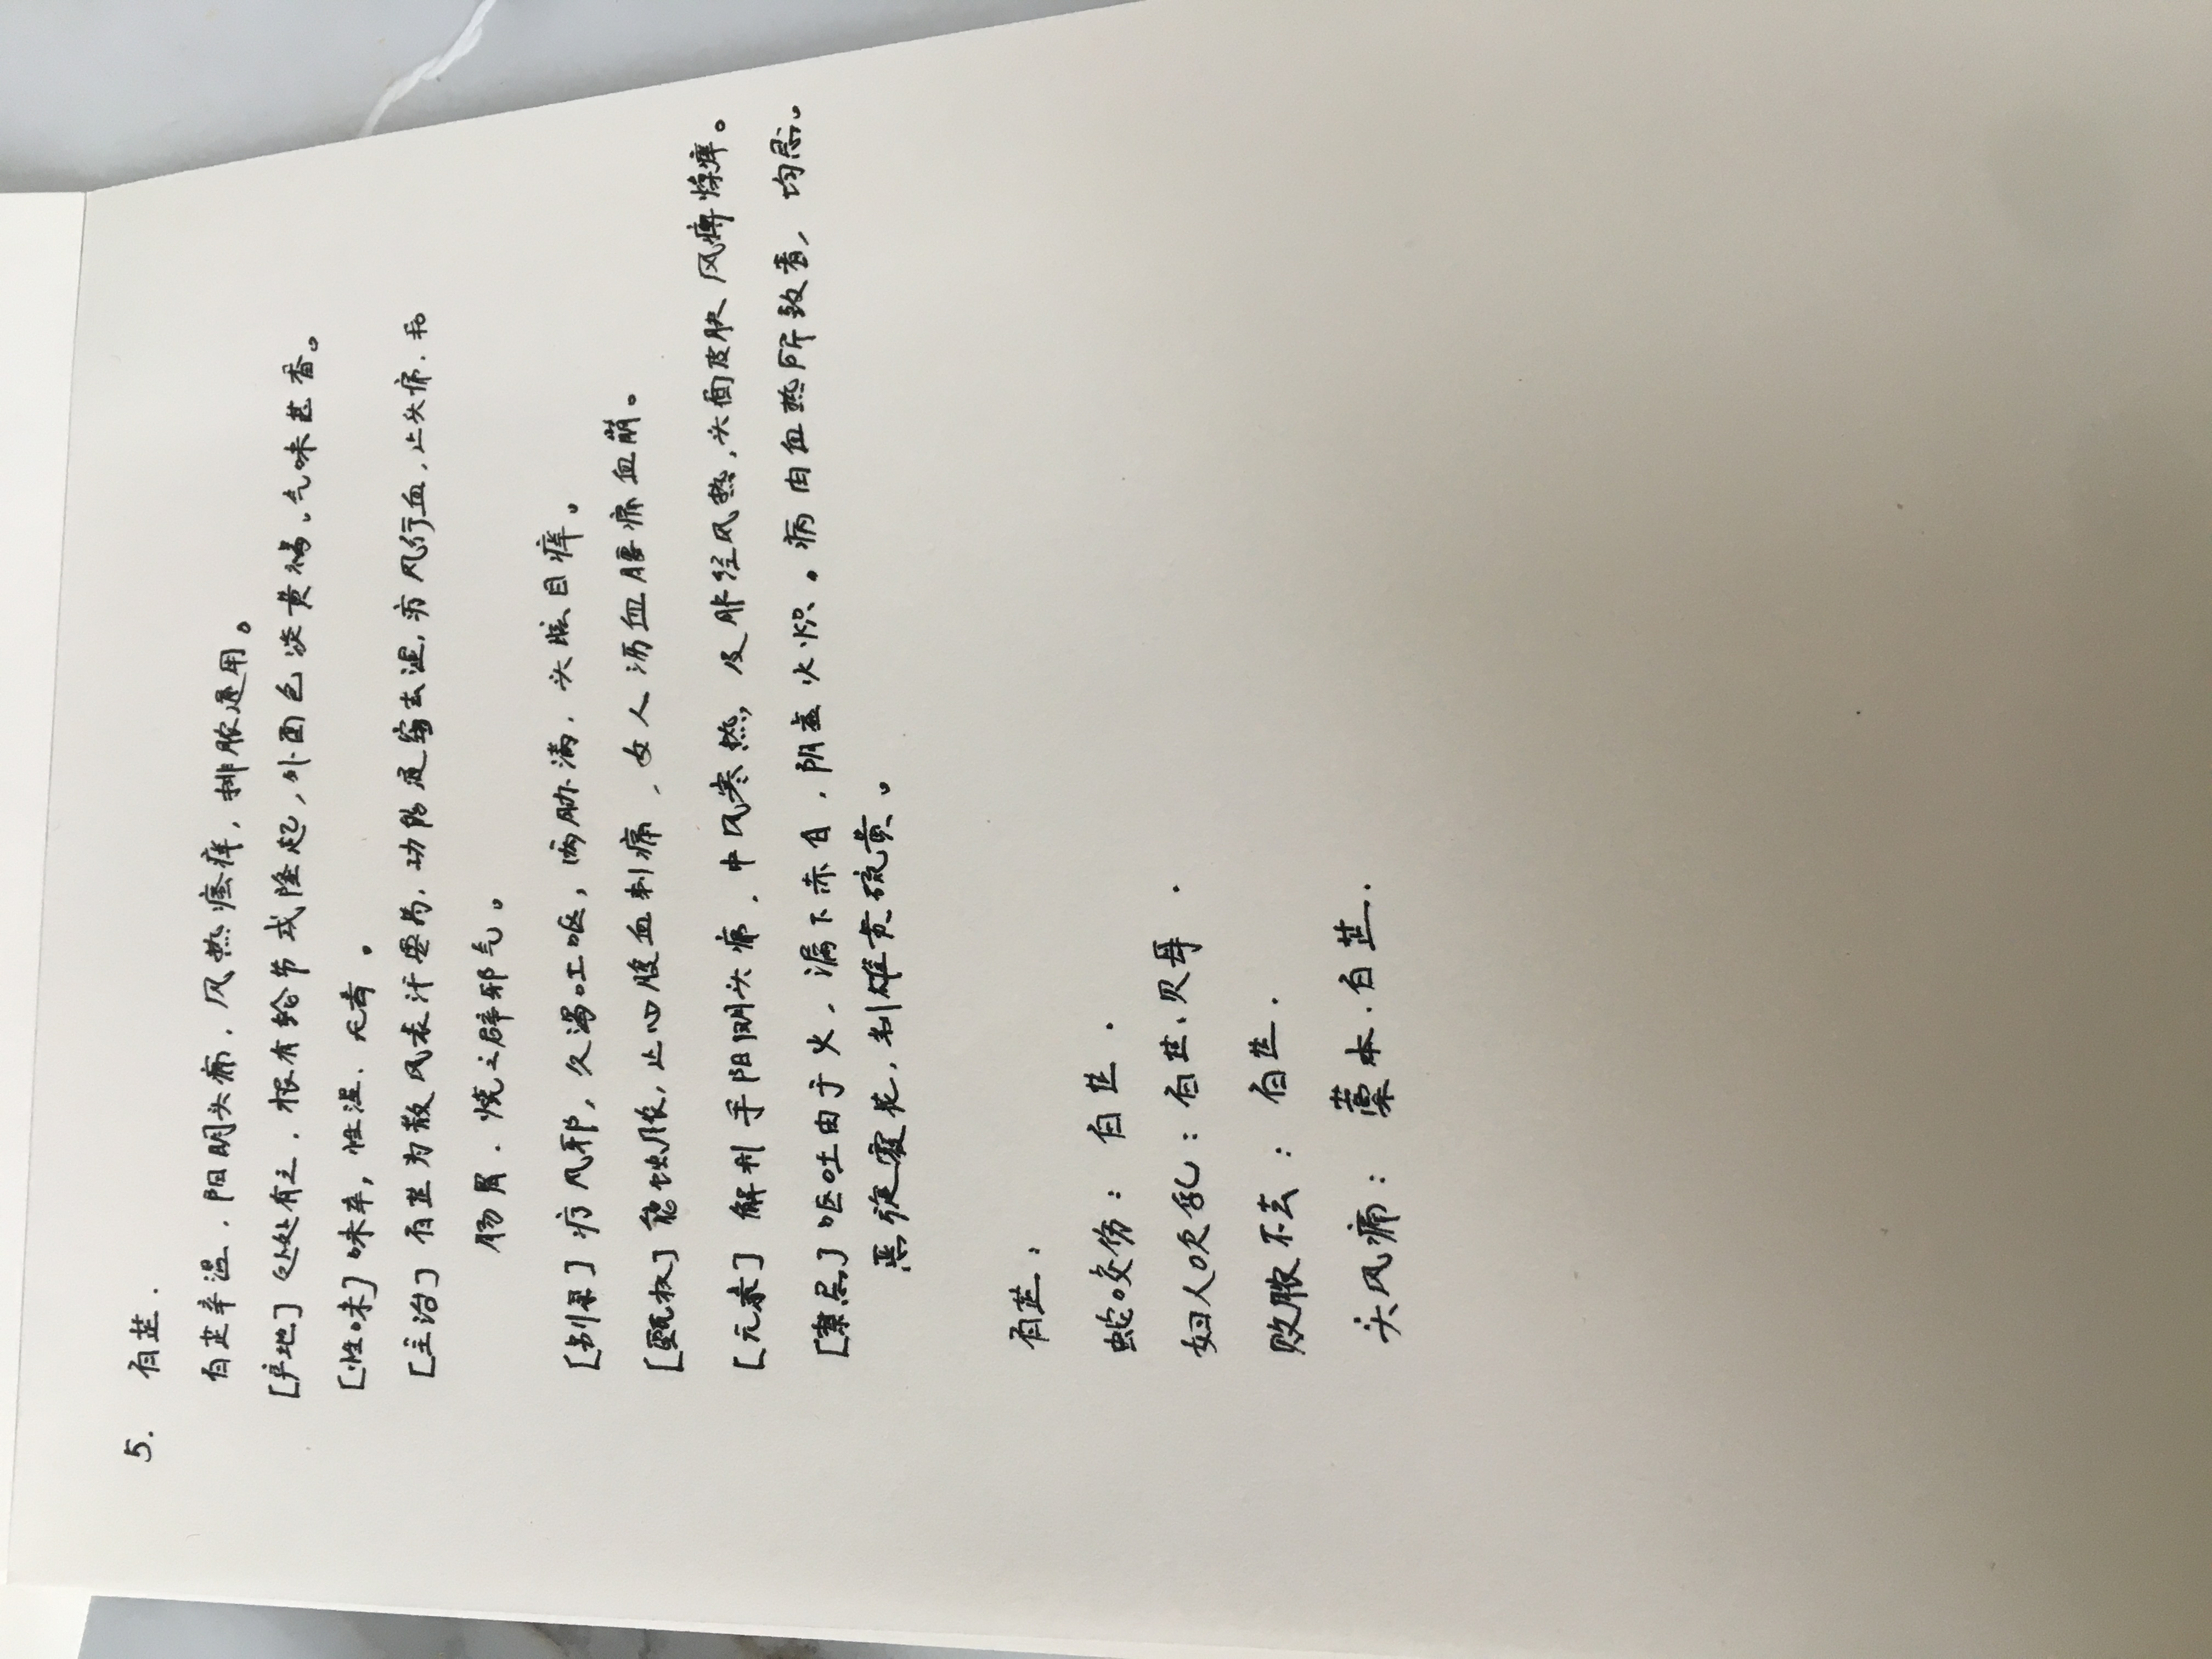 5. 白芷.
白芷辛温.阳明头痛.风热瘙痒,排脓通用。
[产地]处处有之.根有轮节或隆起,外面色淡黄褐.气味甚香。
[性味]味辛,性温.无毒.
[主治]白芷为散风表汗要药.功能逐寒去湿.疗风行血.止头痛.利
肠胃.烧之辟邪气。
[别录]疗风邪,久渴吐呕,两胁满.头眩目痒。
[甄权]能蚀脓,止心腹血刺痛,女人沥血腰痛血崩。
[元素]解利手阳明头痛.中风寒热,及肺经风热.头面皮肤风痹燥痒。
[禁忌]呕吐由于火.漏下赤白.阴虚火炽.病由血热所致者,均忌。
恶旋覆花,制雄黄硫黄。
白芷:
蛇咬伤:白芷.
妇人吹乳:白芷、贝母.
败脓不去:白芷.
头风痛:藁本.白芷.